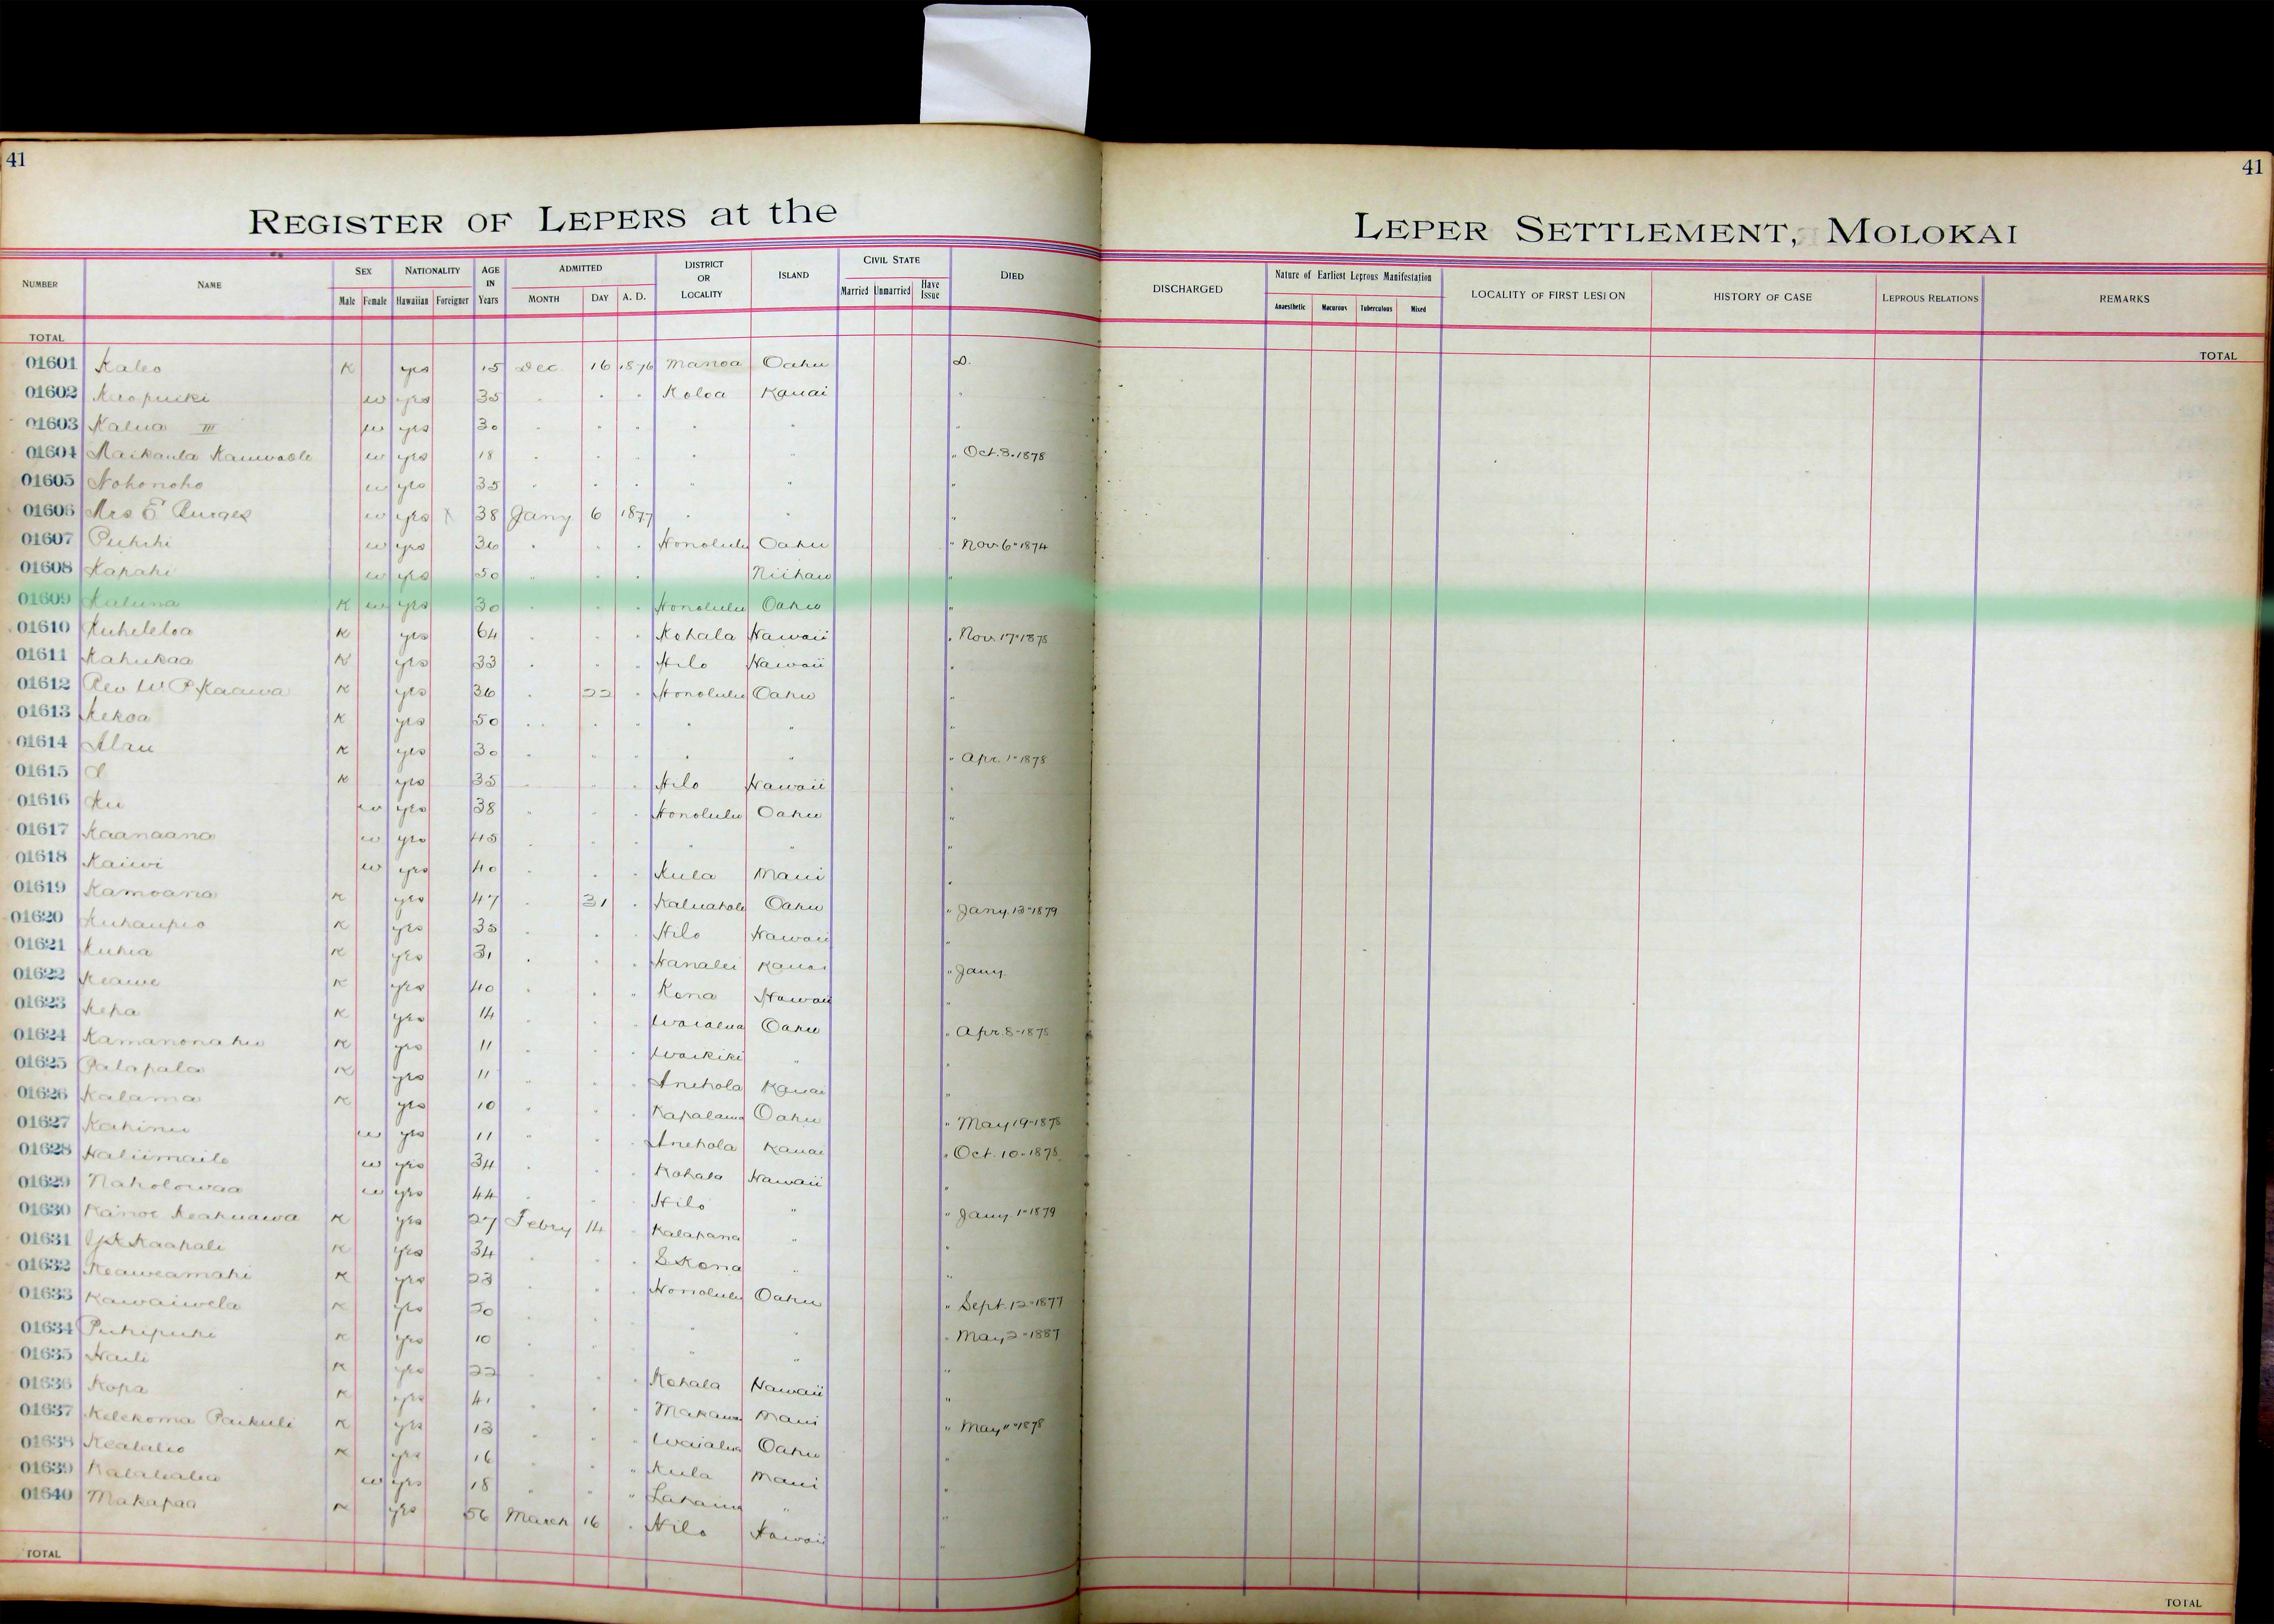 41
41
REGISTER OF LEPERS at the
LEPER SETTLEMENT, MOLOKAI
NUMBER NAME SEX NATIONALITY AGE IN Years ADMITTED DISTRICT OR LOCALITY ISLAND CIVIL STATE DIED DISCHARGED Nature of Earliest Leprous Manifestation LOCALITY OF FIRST LESION HISTORY OF CASE LEPROUS RELATIONS REMARKS
Male Female Hawaiian Foreigner MONTH DAY A. D. Married Unmarried Have Issue Anaesthetic Macurous Tuberculous Mixed
TOTAL TOTAL
01601 Kaleo K yes 15 Dec 16 1876 Manoa Oahu D.
01602 w yes 35 " " " Koloa Kauai "
01603 Kalua III w yes 30 " " " " " "
01604 Maikaula w yes 18 " " " " " " Oct. 3. 1878
01605 Nohonoho w yes 35 " " " " " "
01606 Mrs E Burges w yes X 38 Jany 6 1877 " " "
01607 Puhihi w yes 36 " " " Honolulu Oahu " Nov 6 " 1874
01608 Kapahi w yes 50 " " " Niihau "
01609 Kaluna K w yes 30 " " " Honolulu Oahu "
01610 Kuheleloa K yes 64 " " " Kohala Hawaii " Nov 17 " 1878
01611 Kahukaa K yes 33 " " " Hilo Hawaii "
01612 Rev W. P. Kaawa K yes 36 " 22 " Honolulu Oahu "
01613 Kekoa K yes 50 " " " " " "
01614 Alau K yes 30 " " " " " " Apr. 1 " 1878
01615 K yes 35 " " " Hilo Hawaii "
01616 Ku w yes 38 " " " Honolulu Oahu "
01617 Kaanaana w yes 45 " " " " " "
01618 Kaiwi w yes 40 " " " Kula Maui "
01619 Kamoana K yes 47 " 31 " Kaluahole Oahu " Jany. 13 " 1879
01620 Kuhaupio K yes 35 " " " Hilo Hawaii "
01621 Kuhia K yes 31 " " " Hanalei Kauai " Jany.
01622 Keawe K yes 40 " " " Kona Hawaii "
01623 Kepa K yes 14 " " " Waialua Oahu " Apr. 8 " 1878
01624 Kamanonahu K yes 11 " " " Waikiki " "
01625 Palapala K yes 11 " " " Anehola Kauai "
01626 Kalama K yes 10 " " " Kapalama Oahu " May 19 " 1878
01627 Kahinu w yes 11 " " " Anehola Kauai " Oct. 10 " 1878
01628 Haliimaile w yes 34 " " " Kohala Hawaii "
01629 Naholowaa w yes 44 " " " Hilo " " Jany. 1 " 1879
01630 Kanoe Keakuawa K yes 27 Febry 14 " Kalapana " "
01631 Kaahale K yes 34 " " " S Kona " "
01632 Keaweamahi K yes 23 " " " Honolulu Oahu " Sept. 12 " 1877
01633 Kawaiwela K yes 20 " " " " " May 2 " 1887
01634 Puhipuhi K yes 10 " " " " "
01635 Haili K yes 22 " " " Kohala Hawaii "
01636 Kopa K yes 41 " " " Makawao Maui " May 11 " 1878
01637 Kelekoma Paikuli K yes 13 " " " Waialua Oahu "
01638 Kealalio K yes 16 " " " Kula Maui "
01639 w yes 18 " " " Lahaina " "
01640 Makapaa K yes 56 March 16 " Hilo Hawaii "
TOTAL TOTAL